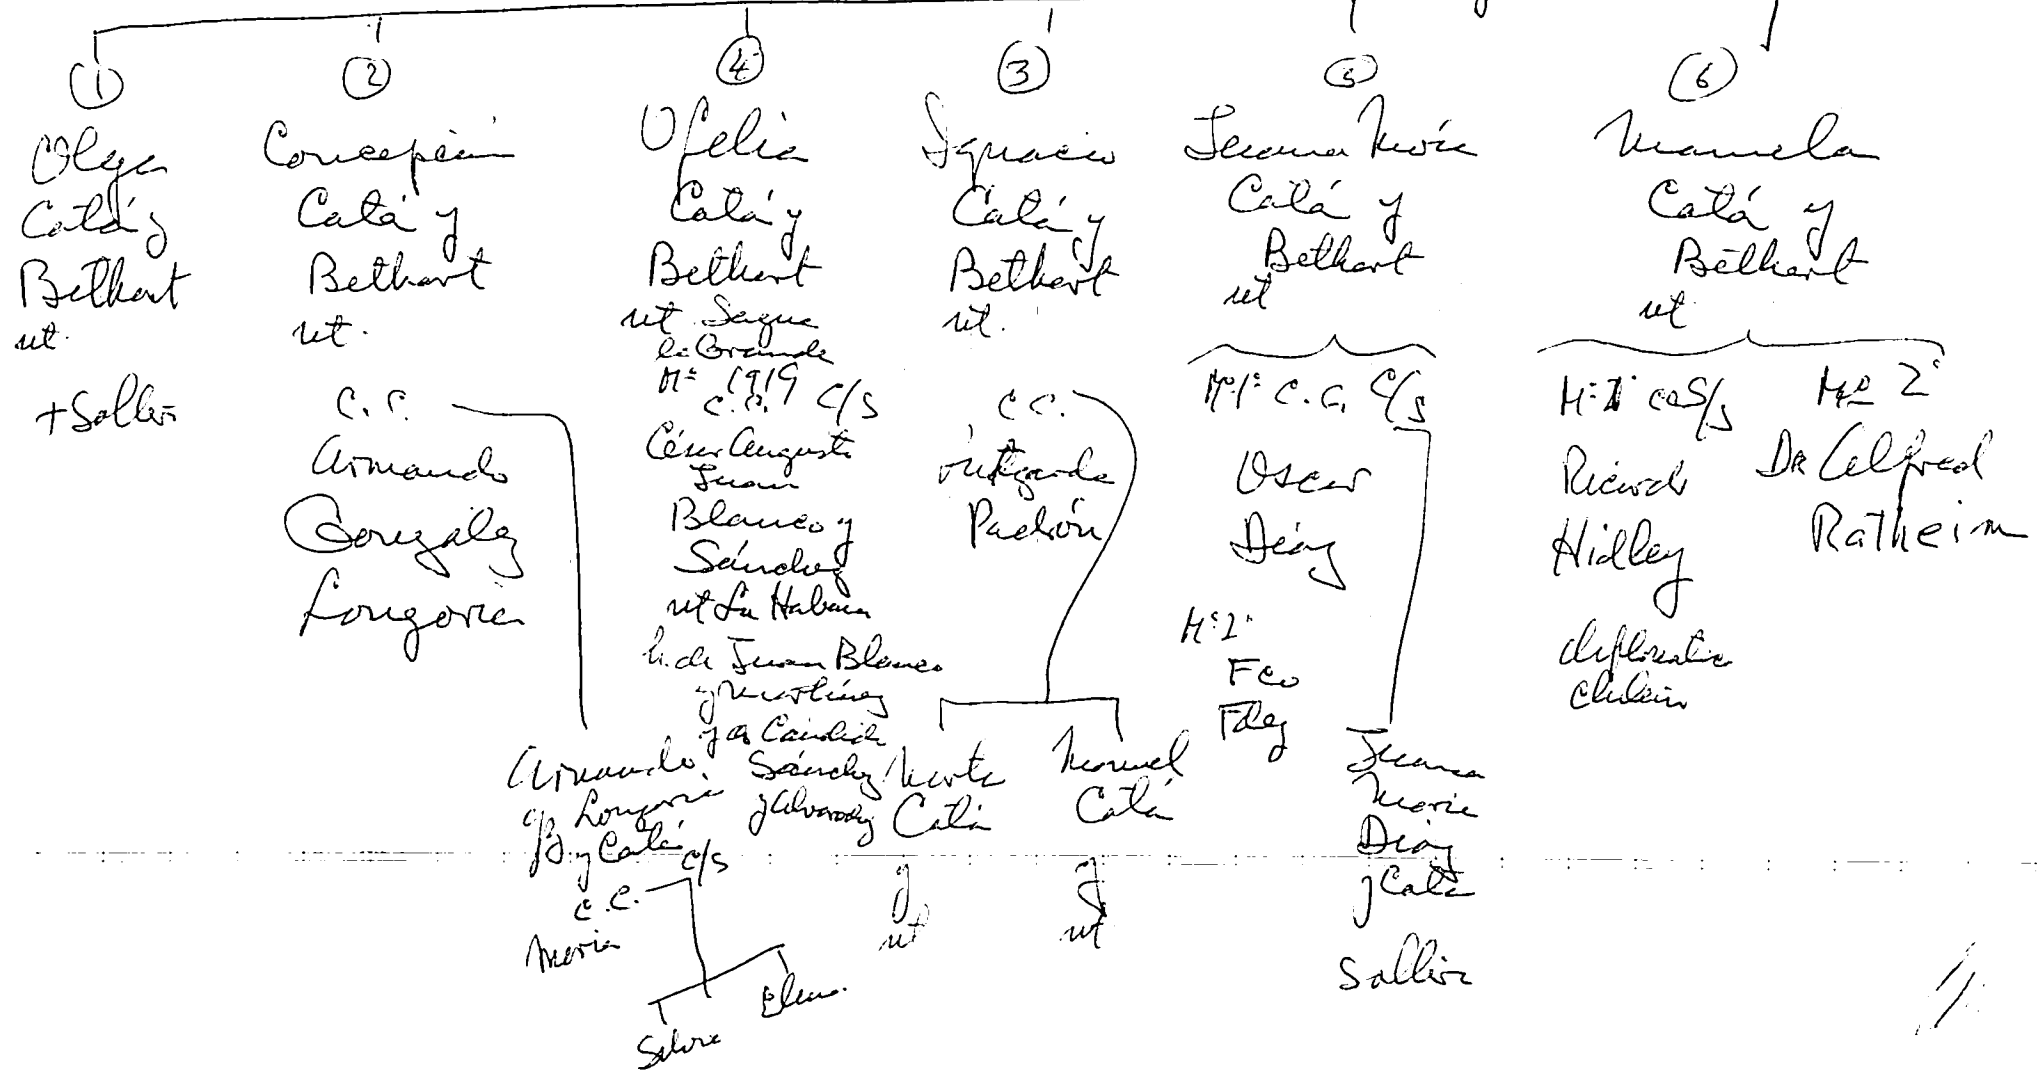 1
Olga
Catá y
Bethart
nt.
+ Soltera
2
Concepción
Catá y
Bethart
nt.
c. c.
Armando
González
Longoria
4
Ofelia
Catá y
Bethart
nt Sagua
la Grande
Mº 1919
c.c. c/s
César Augusto
Juan
Blanco y
Sánchez
nt La Habana
h. de Juan Blanco
y Martínez
y de Cándida
Sánchez
y Alvarez
3
Ignacio
Catá y
Bethart
nt.
c c.
Padrón
5
Juana María
Catá y
Bethart
nt
Mº 1º c. c. c/s
Oscar
Díaz
Mº 2º
Fco
Fdez
6
Manuela
Catá y
Bethart
nt
Mº 1º co S/s
Ricardo
Hidley
diplomático
chileno
Mº 2º
Dr Alfred
Ratheim
Armando
Longoria
y Catá c/s
c. c.
María
Silvia
Elena
Marta
Catá
y
nt
Manuel
Catá
y
nt
Juana
María
Díaz
y Catá
Soltera